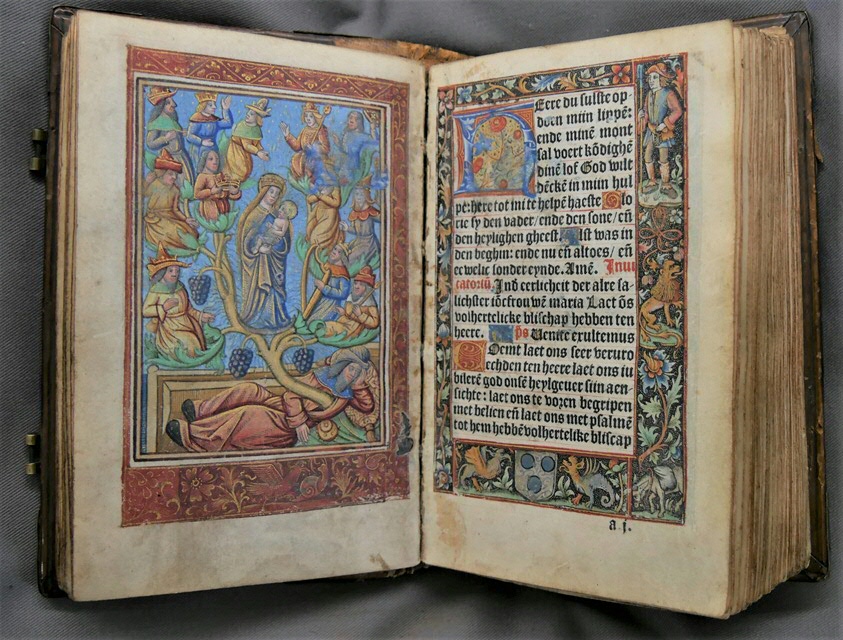 Eere du sulste op
doen mijn lippē:
ende minē mont
sal voert kōdighē
dinē lof God wilt
dēckē in mijn hul
pe: here tot mi te helpē haeste Glo
rie sy den vader/ ende den sone/ eñ
den heylighen gheest Alst was in
den beghin: ende nu eñ altoes/ eñ
ee welic sonder eynde. Amē. Inui
catoriū. Ind eerlicheit der alre sa-
lichster iōcfrou wē maria Laet ōs
volhertelicke blischap hebben ten
heere. ps Uenite exultemus
Oemt laet ons seer veruro
echden ten heere laet ons iu
bilerē god onsē heylgeuer sijn aen
sichte: laet ons te vozen begripen
met belien eñ laet ons met psalmē
tot hem hebbē volhertelike bliscap
a j.